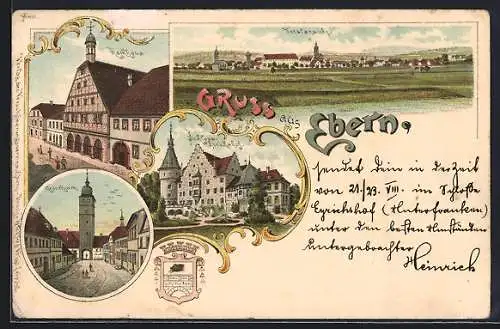 Rathaus
Totalansicht
Gruss aus
Ebern,
Schloss
sendet dein in der Zeit
von 21./93. VIII. im Schloße
Eyrichshof (Unterfranken)
unter den besten Umständen
untergebrachter
Heinrich